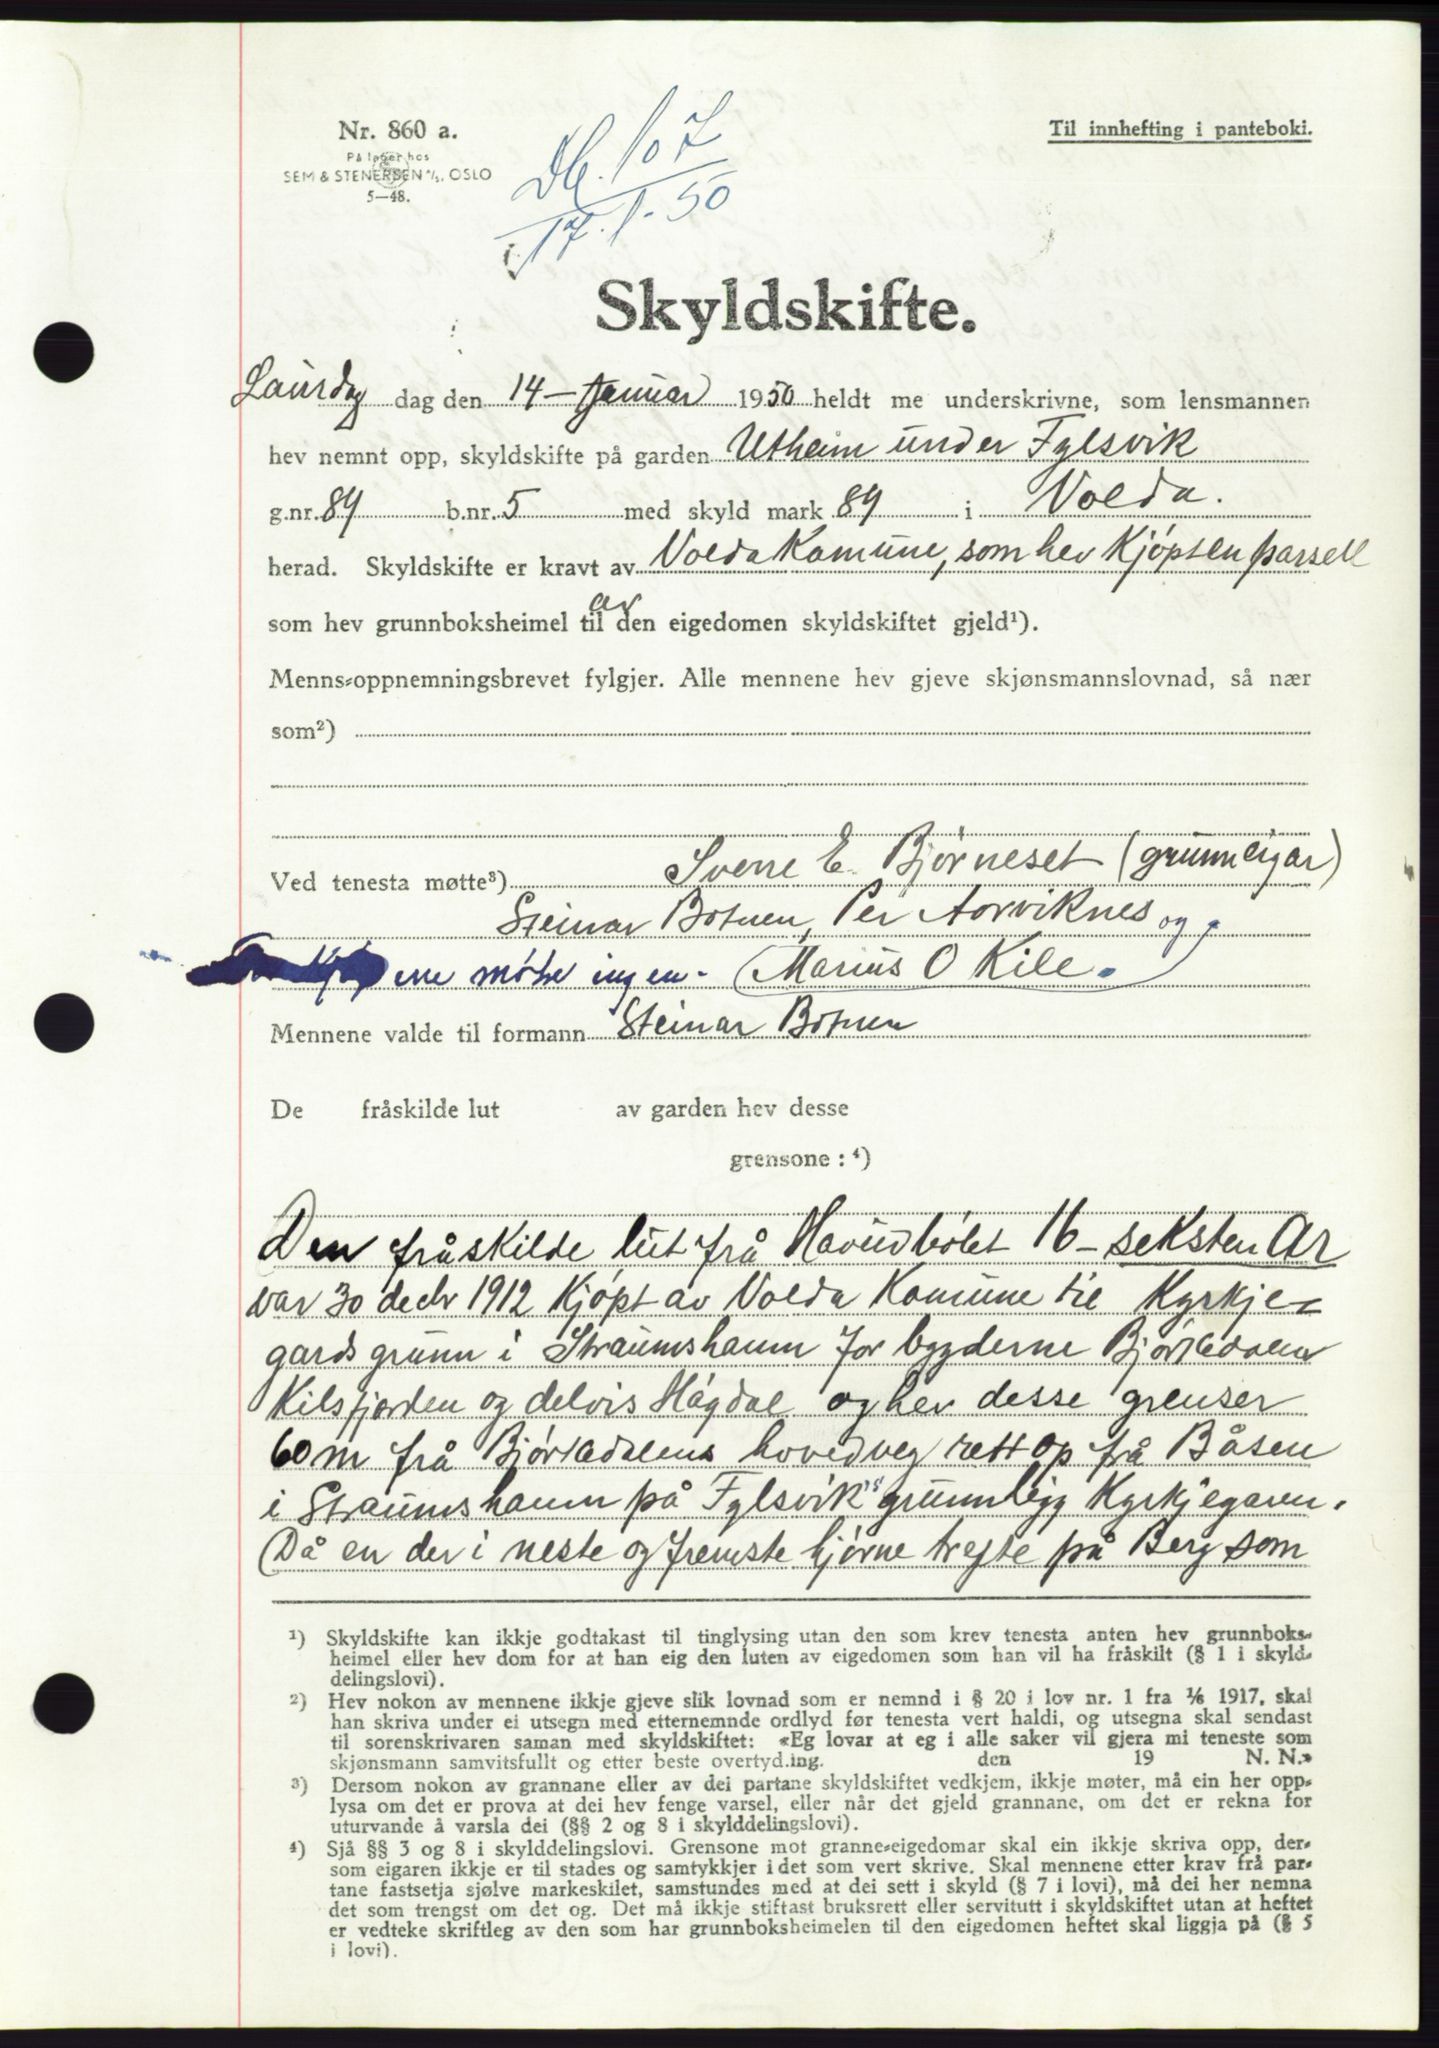 Nr. 860 a.
På lager hos
SEM & STENERSEN A/S, OSLO
5—48.
Til innhefting i panteboki.
Db. 107
17. 1 - 50
Skyldskifte.
Laurdag dag den 14 - Januar 1950 heldt me underskrivne, som lensmannen
hev nemnt opp, skyldskifte på garden Utheim under Fylsvik
g.nr. 89 b.nr. 5 med skyld mark 89 i Volda.
herad. Skyldskifte er kravt av Volda Komune, som hev Kjøpt en parsell
av
som hev grunnboksheimel til den eigedomen skyldskiftet gjeld¹).
Menns-oppnemningsbrevet fylgjer. Alle mennene hev gjeve skjønsmannslovnad, så nær
som²)
Ved tenesta møtte³) Sverre E. Bjørneset (grunneigar)
Steinar Botnen, Per Aarviknes og
møtte ingen. (Marius O Kile.
Mennene valde til formann Steinar Botnen
De fråskilde lut av garden hev desse
grensone : ⁴)
Den fråskilde lut frå Havudbølet 16 - seksten Ar
var 30 decbr 1912 Kjøpt av Volda Komune til Kyrkje-
gards grunn i Straumshamn for bygderne Bjørkedalen
Kilsfjorden og delvis Høgdal og hev desse grenser
60 m frå Bjørkedalens hovedveg rett op frå Båsen
i Straumshamn på Fylsvik's grunn ligg Kyrkjegaren.
Då en der i neste og fremste hjørne trefte på Berg som
¹) Skyldskifte kan ikkje godtakast til tinglysing utan den som krev tenesta anten hev grunnboks-
heimel eller hev dom for at han eig den luten av eigedomen som han vil ha fråskilt (§ 1 i skyld-
delingslovi).
²) Hev nokon av mennene ikkje gjeve slik lovnad som er nemnd i § 20 i lov nr. 1 fra 1/6 1917, skal
han skriva under ei utsegn med etternemnde ordlyd før tenesta vert haldi, og utsegna skal sendast
til sorenskrivaren saman med skyldskiftet: «Eg lovar at eg i alle saker vil gjera mi teneste som
skjønsmann samvitsfullt og etter beste overtyd.ing. den 19 N. N.»
³) Dersom nokon av grannane eller av dei partane skyldskiftet vedkjem, ikkje møter, må ein her opp-
lysa om det er prova at dei hev fenge varsel, eller når det gjeld grannane, om det er rekna for
uturvande å varsla dei (§§ 2 og 8 i skylddelingslovi).
⁴) Sjå §§ 3 og 8 i skylddelingslovi. Grensone mot granne-eigedomar skal ein ikkje skriva opp, der-
som eigaren ikkje er til stades og samtykkjer i det som vert skrive. Skal mennene etter krav frå par-
tane fastsetja sjølve markeskilet, samstundes med at dei sett i skyld (§ 7 i lovi), må dei her nemna
det som trengst om det og. Det må ikkje stiftast bruksrett eller servitutt i skyldskiftet utan at heftet
er vedteke skriftleg av den som har grunnboksheimelen til den eigedomen heftet skal liggja på (§ 5
i lovi).